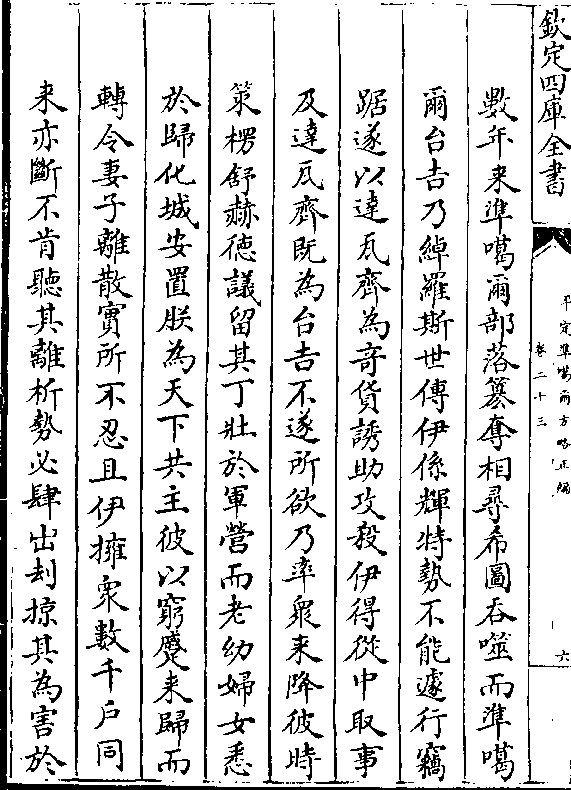 欽定四庫全書
平定準噶爾方略正編
卷二十三
六
數年来準噶爾部落篡奪相尋希圖吞噬而準噶
爾台吉乃綽羅斯世傳伊係輝特勢不能遽行竊
踞遂以達瓦齊為竒貨誘助攻殺伊得從中取事
及達瓦齊既為台吉不遂所欲乃率衆来降彼時
策楞舒赫徳議留其丁壯於軍營而老幼婦女悉
於歸化城安置朕為天下共主彼以窮蹙来歸而
轉令妻子離散實所不忍且伊擁衆數千户同
来亦斷不肯聽其離析勢必肆出刦掠其為害於